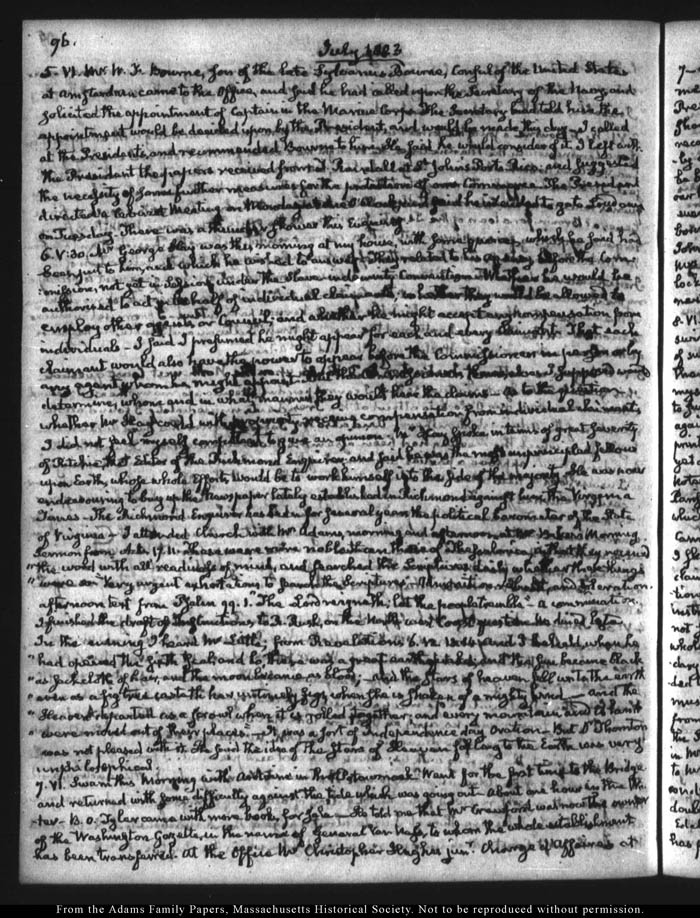 96.
July 1823
5. VI. Mr W. F. Bourne, Son of the late Sylvanus Bourne, Consul of the United States
at Amsterdam came to the Office, and said he had called upon the Secretary of the Navy, and
solicited the appointment of Captain in the Marine Corps. The Secretary had told him the
appointment would be decided upon, by the President, and would be made this day. I called
at the Presidents, and recommended Bourne to him. He said he would consider of it. I left with
the President the papers received from Randall at St Johns Porto Rico: and suggested
the necessity of some further measures for the protection of our Commerce. The President
directed a Cabinet Meeting on Monday at one O'Clock, and said he intended to go to Loudoun
on Tuesday. There was a thunder shower this Evening
6. V:30. Mr George Hay was this morning at my house, with some papers, which he said had
been sent to him, and which he wished to answer. They related to his agency before the Com-
mission, not yet in session under the Slave indemnity Convention. Whether he would be
authorised to act in behalf of individual claimants, or whether they would be allowed to
employ other agents or Counsel; and whether he might accept any compensation from
individuals. I said I presumed he might appear for each and every claimant. That each
claimant would also have the power to appear before the Commissioner in person or by
any agent whom he might appoint. But the themselves I supposed would
determine, whom and in what manner they would hear the claims. As to the question,
whether Mr Hay could with propriety receive compensation from individual claimants,
I did not feel myself competent to give an opinion. Mr Hay spoke in terms of great severity
of Ritchie, the Editor of the Richmond Enquirer and said he was the most unprincipled fellow
upon Earth, whose whole Effort would be to work himself into the side of the majority. He was now
endeavouring to buy up the Newspaper lately established in Richmond against him, the Virginia
Times. The Richmond Enquirer has been for several years the political barometer of the State
of Virginia. I attended Church with Mrs Adams, morning and afternoon, at Mr Baker's. Morning
Sermon from Acts. 17.11. These were more noble than those of Thessalonica, in that they received
"the word with all readiness of mind, and searched the Scriptures daily, whether those things
"were so. Very urgent exhortations to search the Scriptures.
afternoon text from Psalm 99.1. "The Lord reigneth; let the people tremble"
I finished the draft of Instructions to R. Rush, on the North west Coast question.
In the evening I heard Mr Little; from Revelations 6. 12. 13. 14. And I beheld, when he
"had opened the sixth Seal, and lo, there was a great earthquake; and the Sun became black
"as sackcloth of hair, and the moon became as blood; and the stars of heaven fell unto the earth
"even as a fig tree casteth her untimely figs, when she is shaken of a mighty wind. and the
"Heaven departed as a scrowl when it is rolled together; and every mountain and Island
"were moved out of their places. It was a sort of Independence day Oration. But Dr Thornton
was not pleased with it. He said the idea of the Stars of Heaven falling to the Earth was very
unphilosophical.
7. VI. Swam this Morning with Antoine in the Potowmack. Went for the first time to the Bridge
and returned with some difficulty against the tide which was going out. About one hour in the Wa-
ter. B. O. Tyler came with more books, for sale. He told me that Mr Crawford was now the owner
of the Washington Gazette, in the name of General Van Ness, to whom the whole establishment
has been transferred. At the Office Mr Christopher Hughes junr. Chargé d'Affaires at
From the Adams Family Papers, Massachusetts Historical Society. Not to be reproduced without permission.